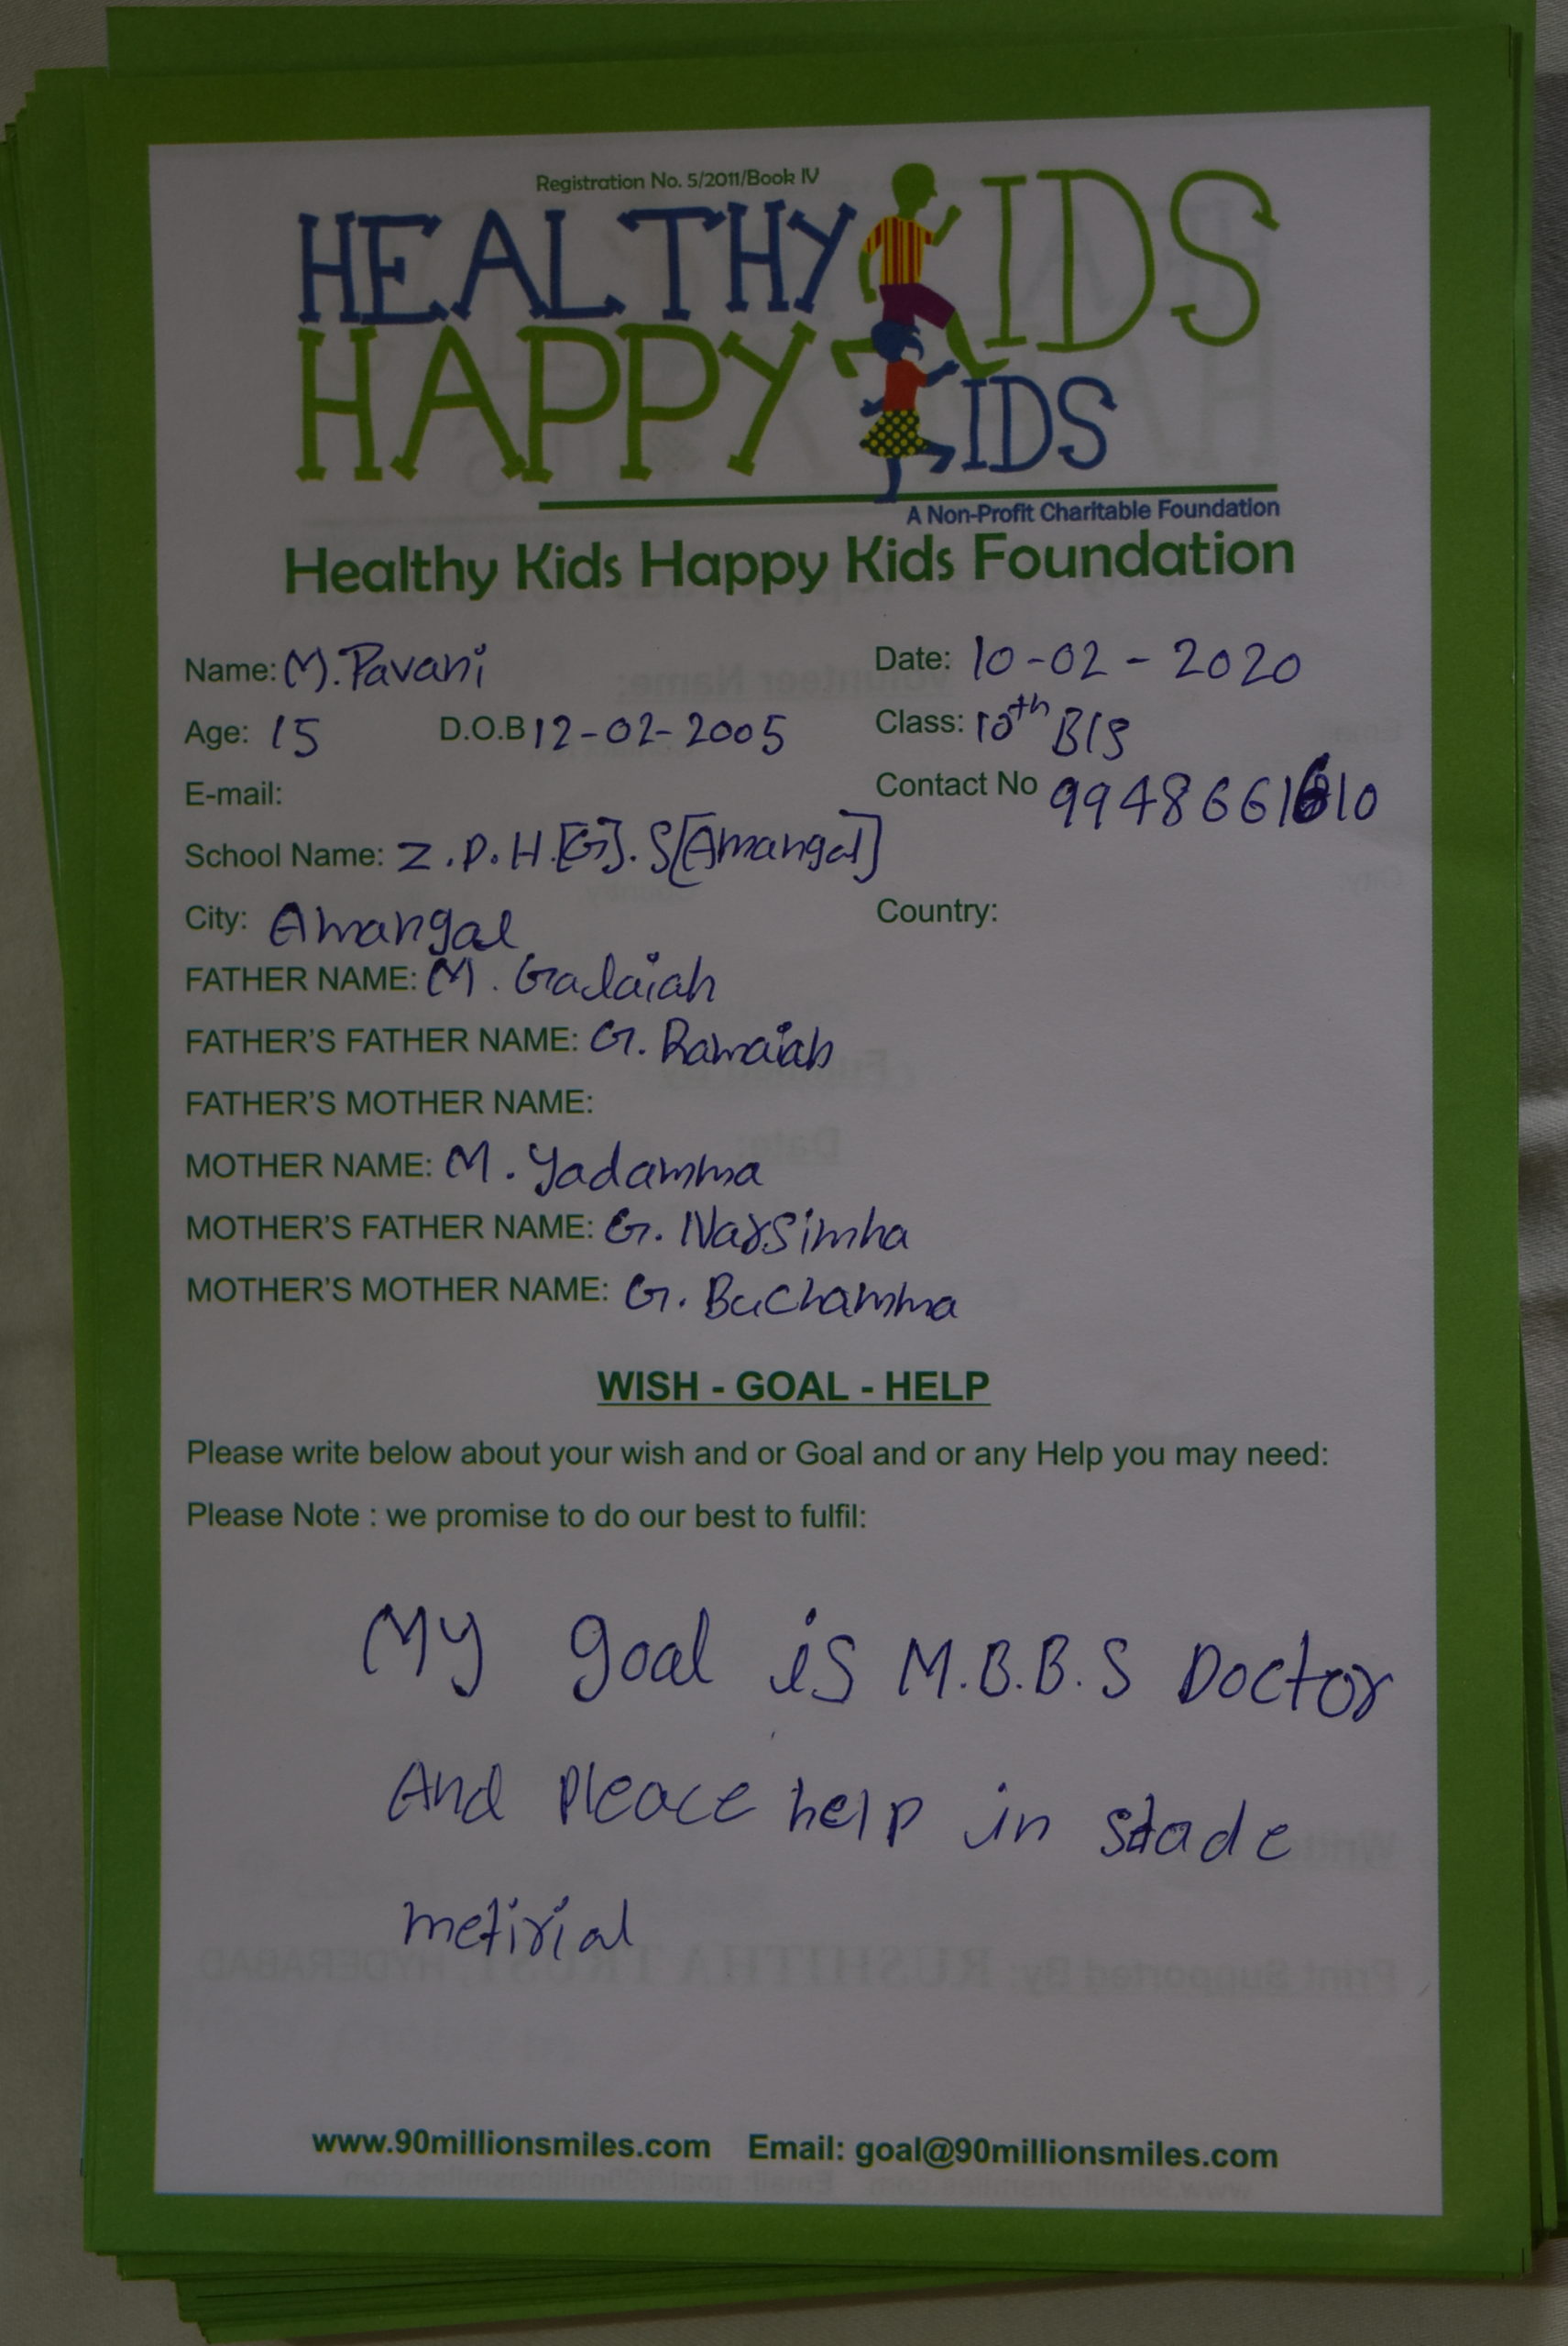 Registration No. 5/2011/Book IV
HEALTHY KIDS
HAPPY KIDS
A Non-Profit Charitable Foundation
Healthy Kids Happy Kids Foundation
Name: M. Pavani Date: 10-02-2020
Age: 15 D.O.B 12-02-2005 Class: 10th
E-mail: Contact No
School Name: Z.P.H.[G].S[Amangal]
City: Amangal Country:
FATHER NAME: M. Galaiah
FATHER'S FATHER NAME: G. Ramaiah
FATHER'S MOTHER NAME:
MOTHER NAME: M. Yadamma
MOTHER'S FATHER NAME: G. Narsimha
MOTHER'S MOTHER NAME: G. Buchamma
WISH - GOAL - HELP
Please write below about your wish and or Goal and or any Help you may need:
Please Note : we promise to do our best to fulfil:
My goal is M.B.B.S Doctor
And pleace help in stade
metirial
www.90millionsmiles.com Email: goal@90millionsmiles.com